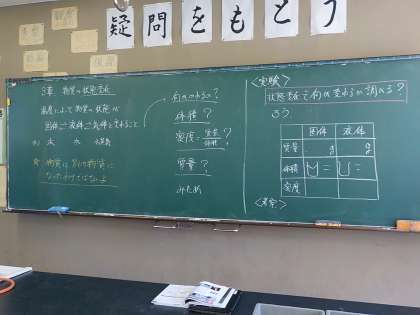 疑問をもとう
3章 物質の状態変化
温度によって物質の状態が
固体⇔液体⇔気体と変わること
例) 氷 水 水蒸気
物質は別の物質に
なったわけではない
何が変わる?
体積?
密度:質量/体積?
質量?
みため
<実験>
状態変化で何が変わるか調べる?
ろう
固体 液体
質量 g g
体積 = =
密度
<考察>